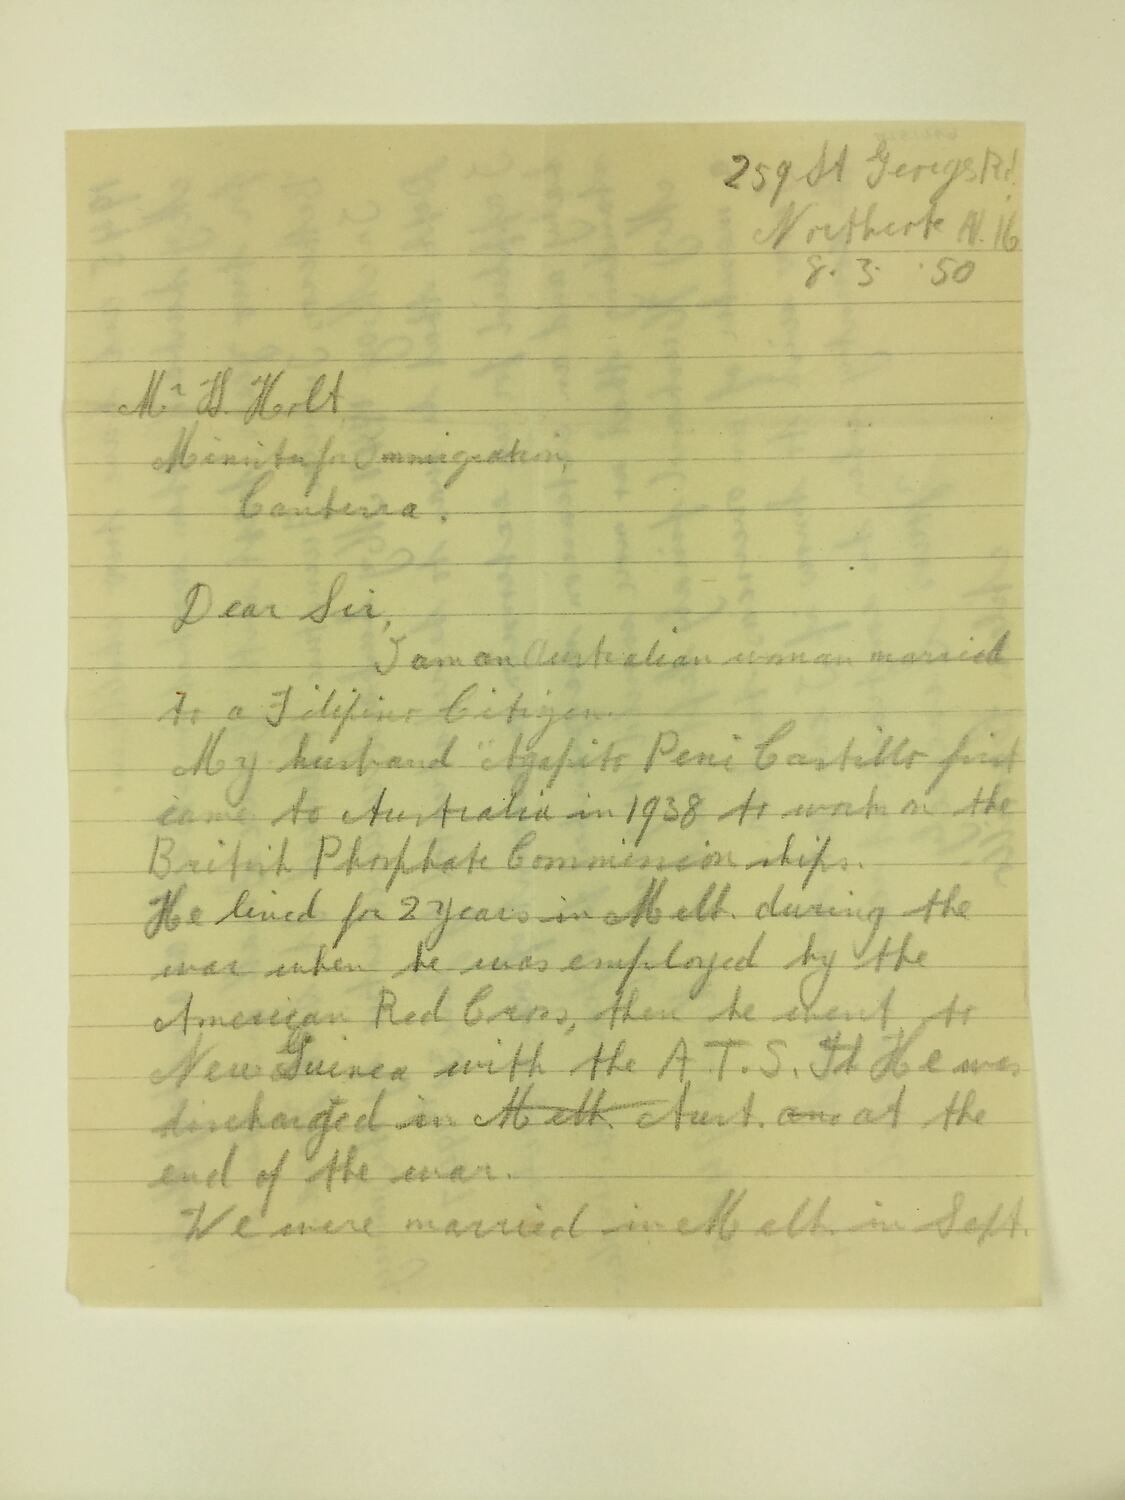 259 St Georges Rd.
Northcote N. 16
8. 3. 50
Mr H. Holt
Minister for Immigration,
Canberra.
Dear Sir,
I am an Australian woman married
to a Filipino Citizen.
My husband "Agapito Peni Castillo first
came to Australia in 1938 to work on the
British Phosphate Commission ships.
He lived for 2 years in Melb. during the
war when he was employed by the
American Red Cross, then he went to
New Guinea with the A.T.S. It He was
discharged in Melb. Aust. and at the
end of the war.
We were married in Melb. in Sept.